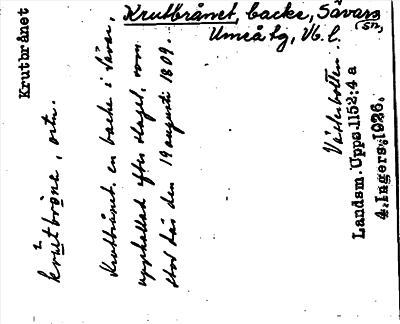 Krutbrånet
Krutbrånet, backe, Sävars
(sn),
Umeå lg, Vb. l.
krutbrǫna, ortn.
Krutbrånet. en backe i Sävar,
uppkallad efter slaget, som
stod där den 19 augusti 1809.
Västerbotten.
Landsm. Upps. 1152:4 a
4. Ingers; 1926.